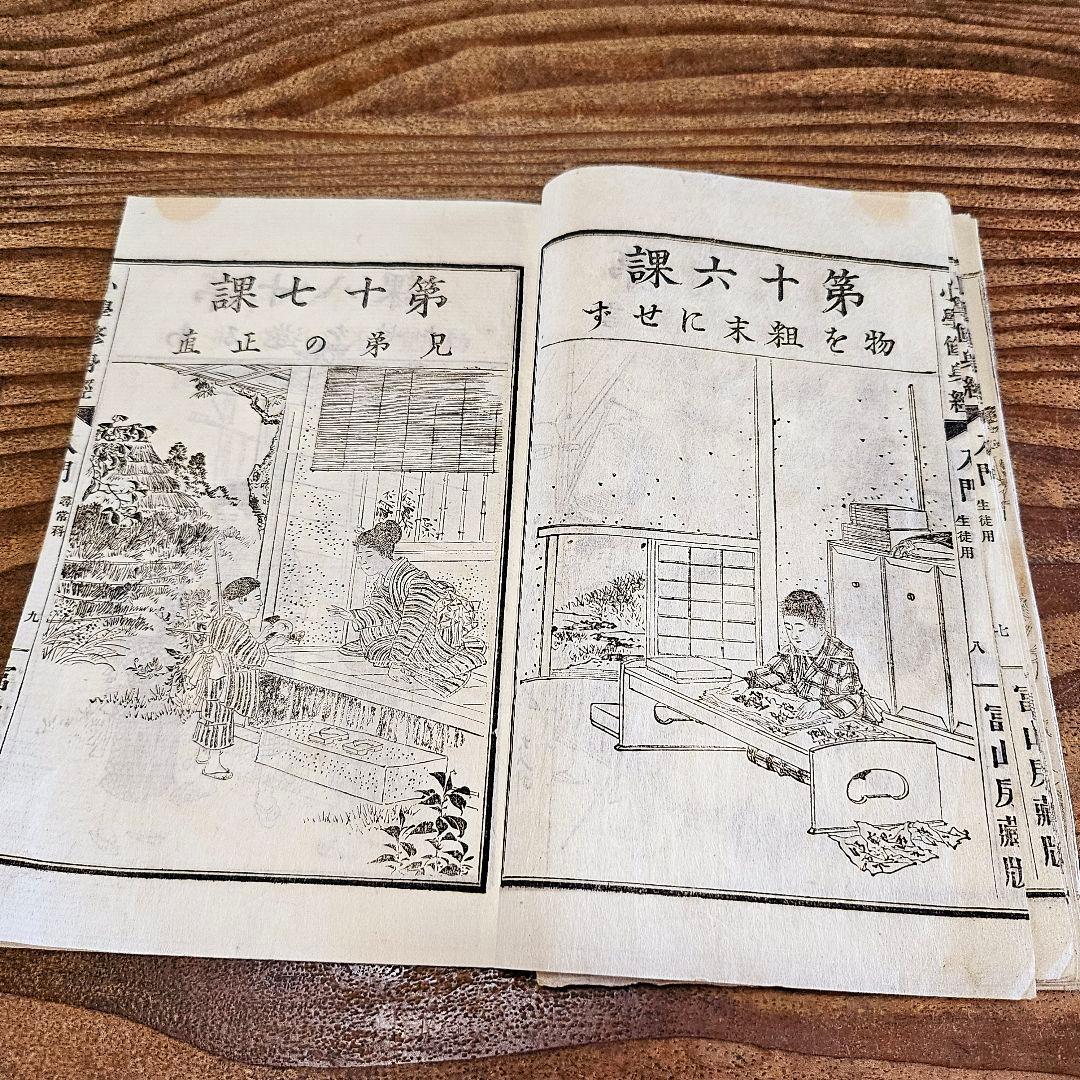 第十六課
物を粗末にせず
小學修身經 入門 生徒用
八
冨山房藏版
入門 生徒用
七
冨山房藏版
第十七課
兄弟の正直
小學修身經 入門 尋常科
九